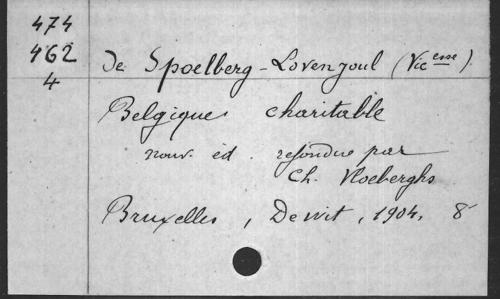 474
462
4
De Spoelberg-Lovenjoul (Vic esse).
Belgique charitable
nouv. ed. refondue par
Ch. Vloeberghs
Bruxelles, Dewit, 1904, 8°